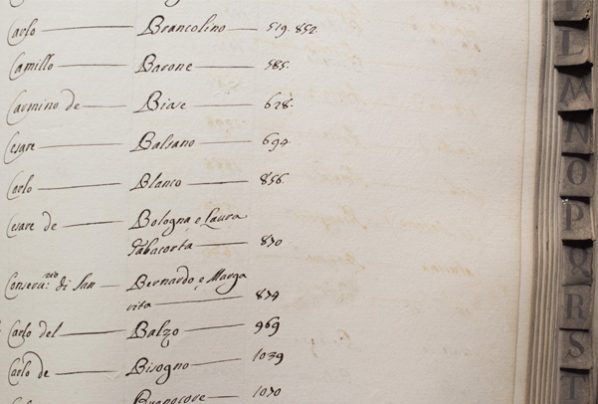 Carlo — Brancolino — 519. 852.
Camillo — Barone — 585.
Carmino de — Biase — 628.
Cesare — Balsano — 694.
Carlo — Blanco — 856.
Cesare de — Bologna, e Laura
Tabacorta — 830
Conserv.rio di San — Bernardo, e Marga
rita — 834
Carlo del — Balzo — 969
Carlo de — Bisogno — 1039
1030
L
M
N
O
P
Q
R
S
T